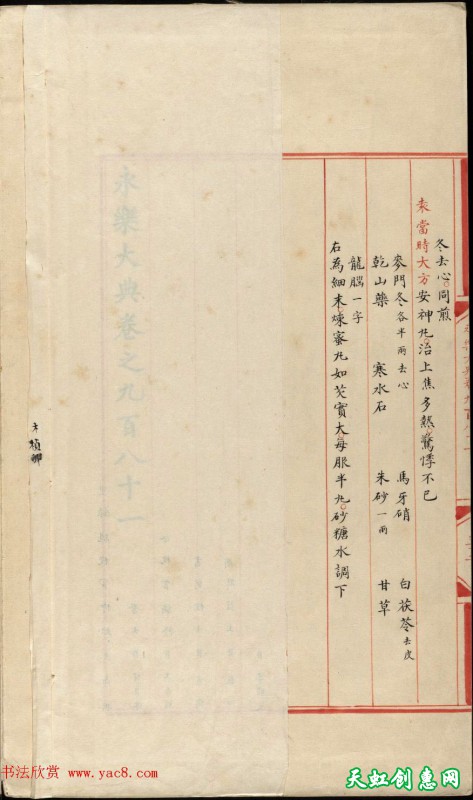 冬去心。同煎
安神丸。治上焦多熱。驚悸不已
麥門冬各半兩去心 馬牙硝 白茯苓去皮
乾山藥 寒水石 朱砂一兩 甘草
龍腦一字
右為細末。煉蜜丸如芡實大。每服半丸。砂糖水調下
永樂大典卷之九百八十一
书法欣赏 www.yac8.com
天虹创惠网